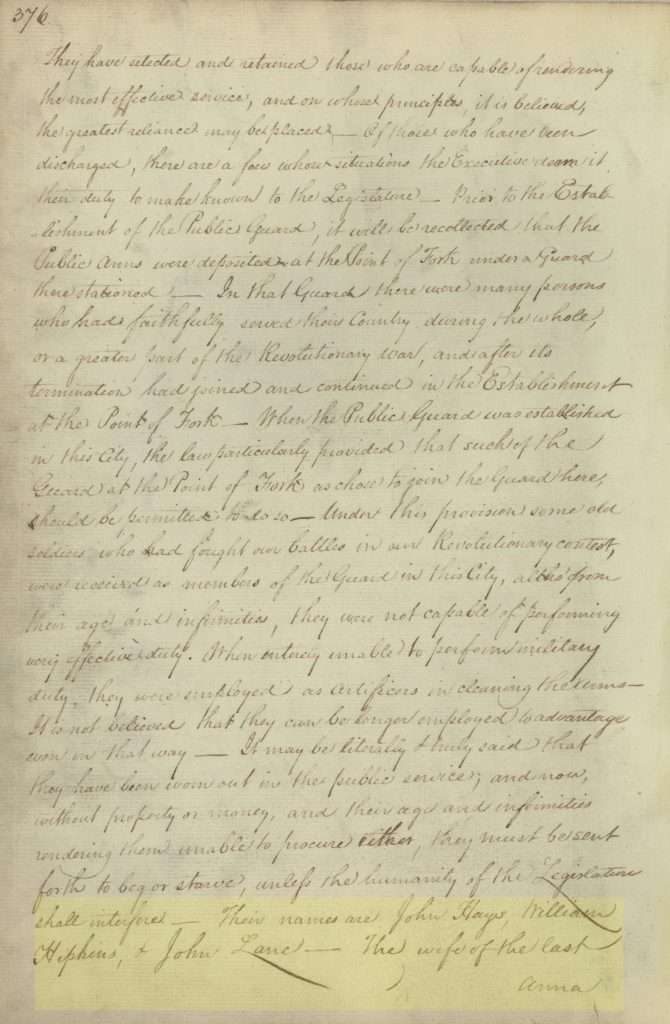 376
They have selected and retained those who are capable of rendering
the most effective service, and on whose principles, it is believed,
the greatest reliance may be placed — Of those who have been
discharged, there are a few whose situations the Executive deem it
their duty to make known to the Legislature — Prior to the Estab-
-lishment of the Public Guard, it will be recollected that the
Public Arms were deposited at the Point of Fork under a Guard
there stationed — In that Guard there were many persons
who had faithfully served their Country during the whole,
or a greater part of the Revolutionary war, and after its
termination had joined and continued in the Establishment
at the Point of Fork — When the Public Guard was established
in this City, the law particularly provided that such of the
Guard at the Point of Fork as chose to join the Guard here,
should be permitted to do so — Under this provision some old
soldiers who had fought our battles in our Revolutionary contest,
were received as members of the Guard in this City, altho' from
their age and infirmities, they were not capable of performing
very effective duty. When entirely unable to perform military
duty, they were employed as artificers in cleaning the arms —
It is not believed that they can be longer employed to advantage
even in that way — It may be literally & truly said that
they have been worn out in the public service; and now,
without property or money, and their age and infirmities
rendering them unable to procure either, they must be sent
forth to beg or starve, unless the humanity of the Legislature
shall interfere — Their names are John Hays, William
Hipkins, & John Lane — The wife of the last
Anna